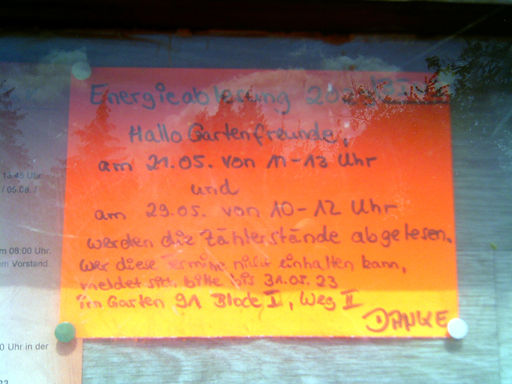 Energieablesung
Hallo Gartenfreunde,
am 21.05. von 11-13 Uhr
und
am 29.05. von 10-12 Uhr
werden die Zählerstände abgelesen.
Wer diese Termine nicht einhalten kann,
meldet sich bitte bis 31.05.23
im Garten 91 Block II, Weg II
DANKE
m 08:00 Uhr.
em Vorstand
0 Uhr in der